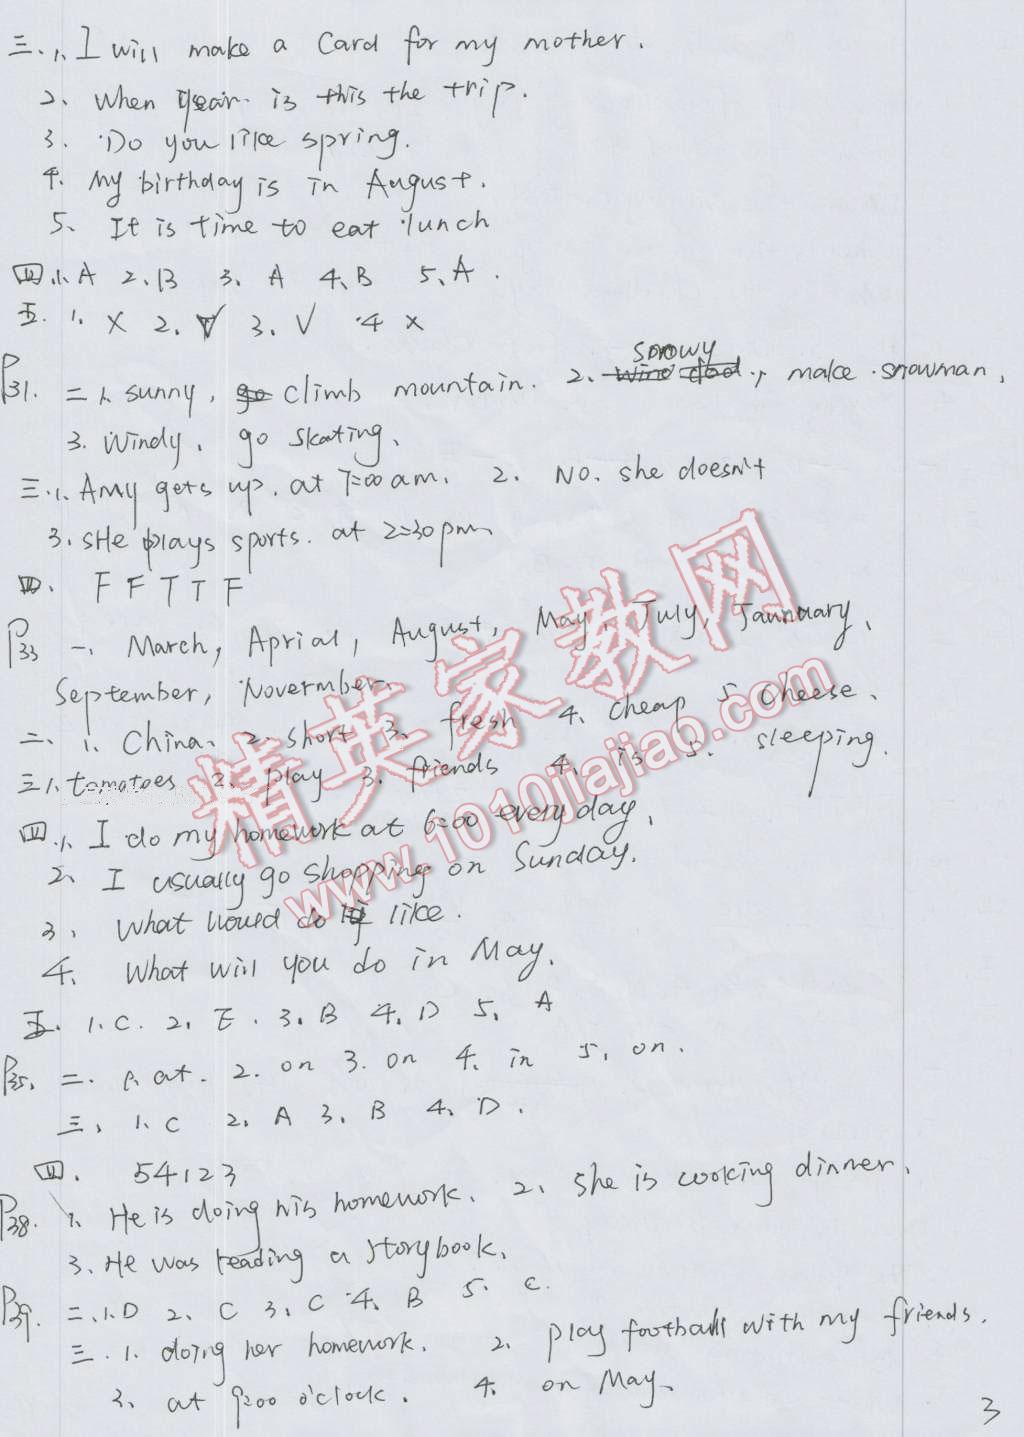 三.1、I will make a Card for my mother.
2、When is this the trip.
3. Do you like spring.
4. My birthday is in August.
5、It is time to eat lunch
四.1、A 2、B 3、A 4、B 5、A.
五. 1、× 2、√ 3、√ 4 ×
snowy
P31. 二 1、sunny, go climb mountain. 2、make snowman,
3. Windy, go skating.
三.1、Amy gets up. at 7:00 am. 2. No. she doesn't
3. sHe plays sports. at 2:30 pm.
四. F F T T F
P33 一、March, Aprial, August, May, July, Jannuary,
September, Novermber.
二、1、China、2、short 3、fresh 4、cheap 5、cheese、
三1、tomatoes 2、play 3、friends 4、is 5、sleeping.
四.1、I do my homework at 6:00 everyday.
2、I usually go shopping on Sunday.
3、What would do like.
4、What will you do in May.
五. 1、C. 2、E. 3、B 4、D 5、A
P35、二. 1、at. 2. on 3. on 4. in 5、on.
三、1、C 2、A 3、B 4、D.
四. 54123
P38. 1、He is doing his homework. 2、she is cooking dinner.
3、He was reading a storybook.
P39. 二.1、D 2、C 3、C 4、B 5、C.
三.1. doing her homework. 2、play football with my friends.
3、at 9:00 o'clock. 4. on May.
3
精英家教网
www.1010jiajiao.com